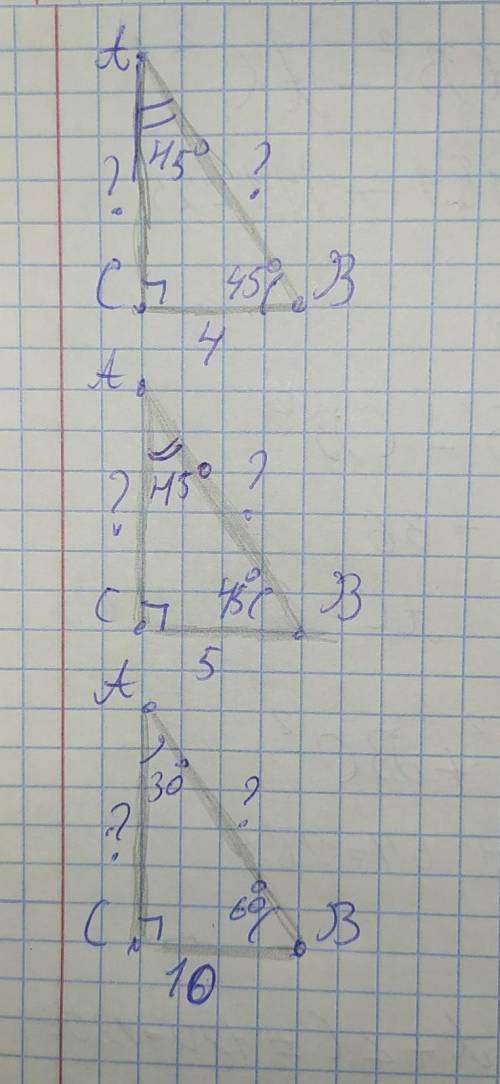 A
45°
?
?
C
45°
B
4
A
45°
?
?
C
45°
B
5
A
30°
?
?
C
60°
B
10